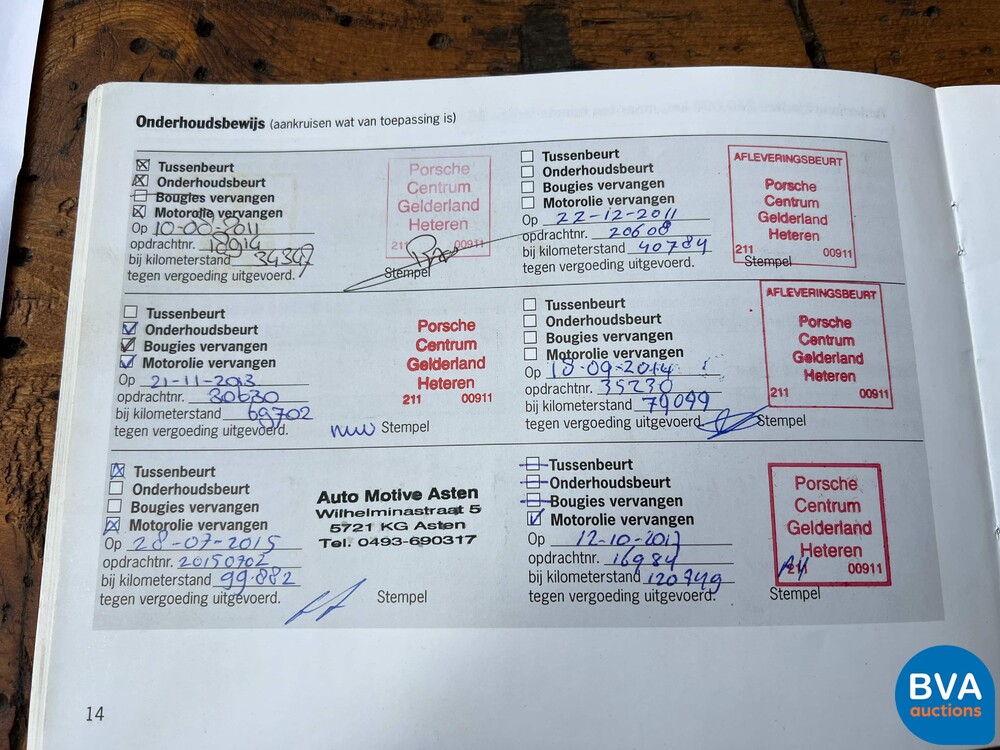 Onderhoudsbewijs (aankruisen wat van toepassing is)
Tussenbeurt
Onderhoudsbeurt
Bougies vervangen
Motorolie vervangen
Op 10-08-2011
opdrachtnr. 18914
bij kilometerstand 34347
tegen vergoeding uitgevoerd.
Porsche
Centrum
Gelderland
Heteren
211 00911
Stempel
Tussenbeurt
Onderhoudsbeurt
Bougies vervangen
Motorolie vervangen
Op 22-12-2011
opdrachtnr. 20608
bij kilometerstand 40784
tegen vergoeding uitgevoerd.
AFLEVERINGSBEURT
Porsche
Centrum
Gelderland
Heteren
211 00911
Stempel
Tussenbeurt
Onderhoudsbeurt
Bougies vervangen
Motorolie vervangen
Op 21-11-2013
opdrachtnr. 30630
bij kilometerstand 69702
tegen vergoeding uitgevoerd.
Porsche
Centrum
Gelderland
Heteren
211 00911
Stempel
Tussenbeurt
Onderhoudsbeurt
Bougies vervangen
Motorolie vervangen
Op 18-09-2014
opdrachtnr. 35230
bij kilometerstand 79099
tegen vergoeding uitgevoerd.
AFLEVERINGSBEURT
Porsche
Centrum
Gelderland
Heteren
211 00911
Stempel
Tussenbeurt
Onderhoudsbeurt
Bougies vervangen
Motorolie vervangen
Op 28-07-2015
opdrachtnr. 20150702
bij kilometerstand 99.882
tegen vergoeding uitgevoerd.
Auto Motive Asten
Wilhelminastraat 5
5721 KG Asten
Tel. 0493-690317
Stempel
Tussenbeurt
Onderhoudsbeurt
Bougies vervangen
Motorolie vervangen
Op 12-10-2017
opdrachtnr. 16984
bij kilometerstand 120749
tegen vergoeding uitgevoerd.
Porsche
Centrum
Gelderland
Heteren
211 00911
Stempel
14
BVA
auctions